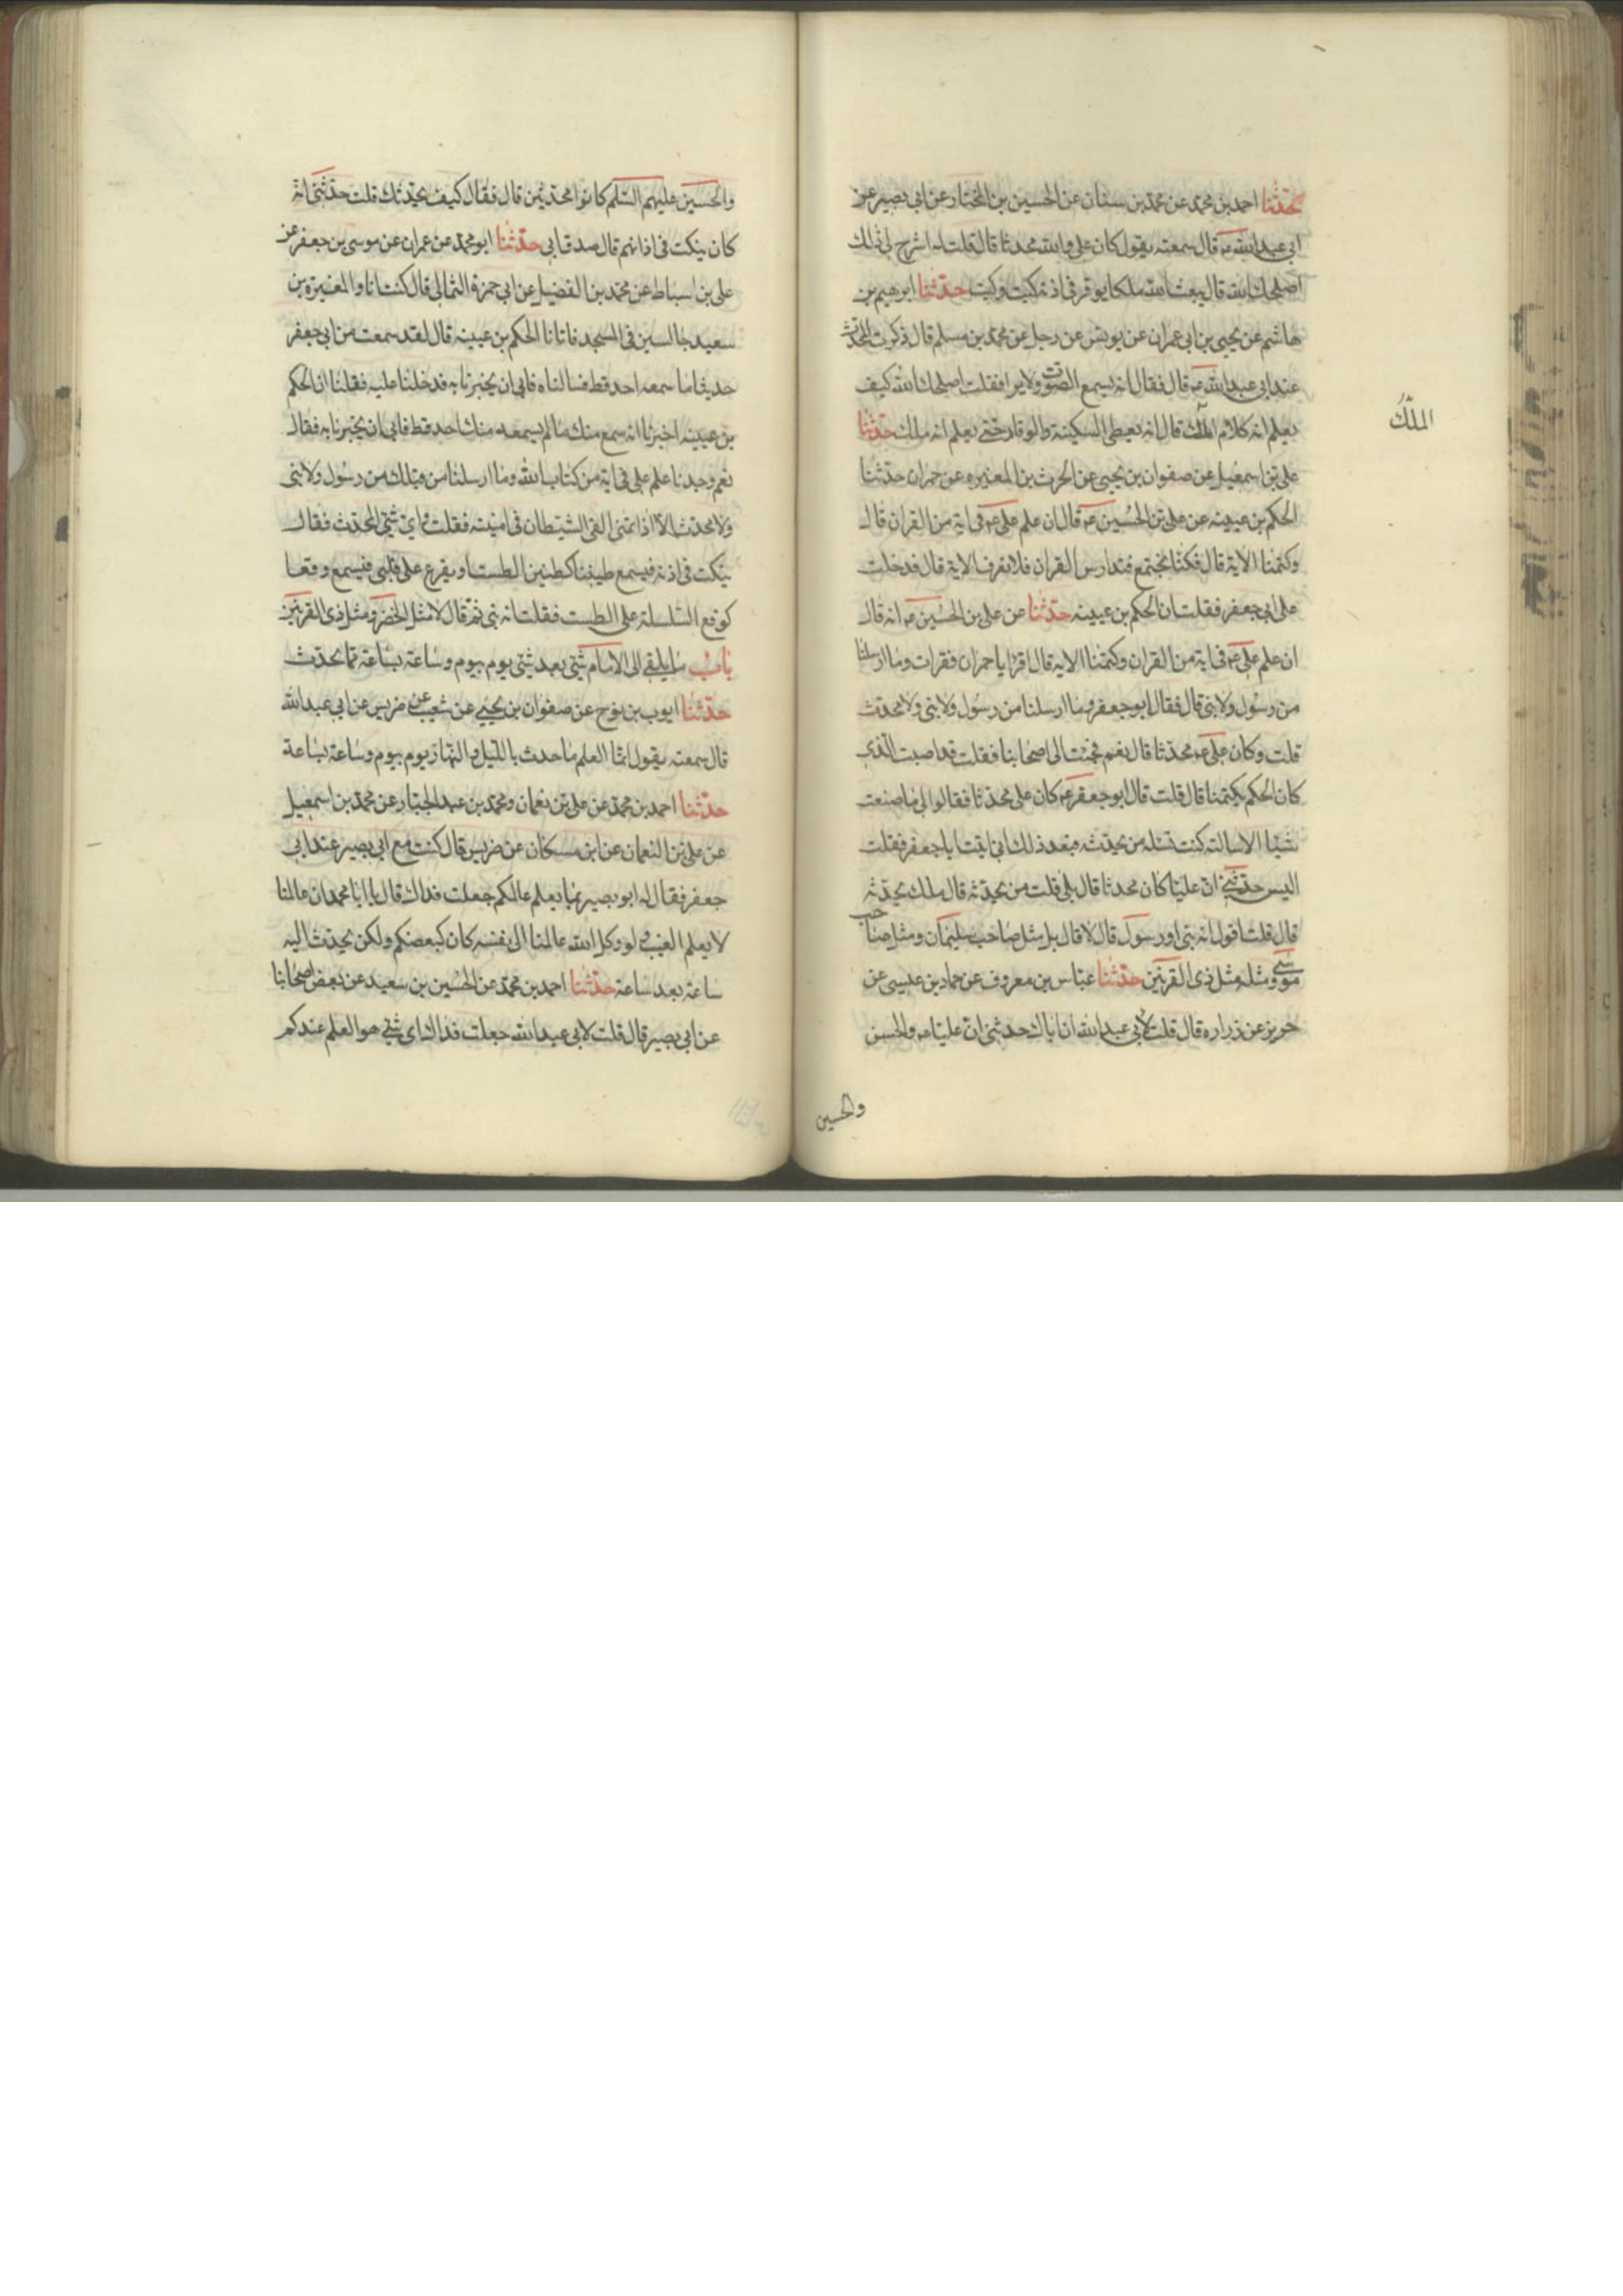 حدثنا احمد بن محمد عن محمد بن سنان عن الحسين بن المختار عن ابي بصير عن
ابي عبد الله عه قال سمعته يقول كان على والله محدثا قال قلت له اشرح لى ذلك
اصلحك الله قال يبعث الله ملكا يوقر فى اذنه كيت وكيت حدثنا ابرهيم بن
هاشم عن يحيى بن ابى عمران عن يونس عن رجل عن محمد بن مسلم قال ذكرت المحدث
عند ابى عبد الله عه قال فقال انه يسمع الصوت ولا يرا فقلت اصلحك الله كيف
يعلم انه كلام الملك قال انه يعطى السكينة والوقار حتى يعلم انه ملك حدثنا
الملك
على بن اسمعيل عن صفوان بن يحيى عن الحرث بن المغيره عن حمران حدثنا
الحكم بن عيينه عن على بن الحسين عه قال ان علم على عه فى اية من القران قال
وكتمنا الاية قال فكنا نجتمع فنتدارس القران فلا نعرف الاية قال فدخلت
على ابى جعفر فقلت ان الحكم بن عيينه حدثنا عن على بن الحسين عه انه قال
ان علم على عه فى اية من القران وكتمنا الايه قال اقرا يا حمران فقرات وما ارسلنا
من رسول ولا نبى قال فقال ابو جعفر وما ارسلنا من رسول ولا نبى ولا محدث
قلت وكان على عه محدثا قال نعم فجئت الى اصحابنا فقلت قد اصبت الذى
كان الحكم يكتمنا قال قلت قال ابو جعفر عه كان على محدثا فقالوا لى ما صنعت
شيئا الا سالته كنت تسئله من يحدثه فبعد ذلك انى اتيت ابا جعفر فقلت
اليس حدثتنى ان عليا كان محدثا قال بلى قلت من يحدثه قال ملك يحدثه
قال قلت اقول انه نبى او رسول قال لا قال بل مثل صاحب سليمان ومثل صاحب
موسى ومثله مثل ذى القرنين حدثنا عباس بن معروف عن حماد بن عيسى عن
حريز عن زراره قال قلت لابى عبد الله ان اباك حدثنى ان عليا عه والحسن
والحسين
والحسين عليهم السلم كانوا محدثين قال فقال كيف يحدثك قلت حدثنى انه
كان ينكت فى اذانهم قال صدق ابى حدثنا ابو محمد عن عمران عن موسى بن جعفر عن
على بن اسباط عن محمد بن الفضيل عن ابى حمزة الثمالى قال كنت انا والمغيرة بن
سعيد جالسين فى المسجد فاتانا الحكم بن عيينه قال لقد سمعت من ابى جعفر
حديثا ما سمعه احد قط فسالناه فابى ان يخبرنا به فدخلنا عليه فقلنا ان الحكم
بن عيينه اخبرنا انه سمع منك ما لم يسمعه منك احد قط فابى ان يخبرنا به فقال
نعم وجدنا علم على فى اية من كتاب الله وما ارسلنا من قبلك من رسول ولا نبى
ولا محدث الا اذا تمنى القى الشيطان فى امنيته فقلت واى شئ المحدث فقال
ينكت فى اذنه فيسمع طنينا كطنين الطست او يقرع على قلبه فيسمع وقعا
كوقع السلسلة على الطست فقلت انه نبى ثم قال لا مثل الخضر ومثل ذى القرنين
باب ما يلقى الى الامام شئ بعد شئ يوم بيوم وساعة بساعة مما يحدث
حدثنا ايوب بن نوح عن صفوان بن يحيى عن شعيب عن ضريس عن ابى عبد الله
قال سمعته يقول انما العلم ما حدث بالليل والنهار يوم بيوم وساعة بساعة
حدثنا احمد بن محمد عن على بن نعمان ومحمد بن عبد الجبار عن محمد بن اسمعيل
عن على بن النعمان عن ابن مسكان عن ضريس قال كنت مع ابى بصير عند ابى
جعفر فقال له ابو بصير بما يعلم عالمكم جعلت فداك قال يا ابا محمد ان عالمنا
لا يعلم الغيب ولو وكل الله عالمنا الى نفسه كان كبعضكم ولكن يحدث اليه
ساعة بعد ساعة حدثنا احمد بن محمد عن الحسين بن سعيد عن بعض اصحابنا
عن ابى بصير قال قلت لابى عبد الله جعلت فداك اى شئ هو العلم عندكم